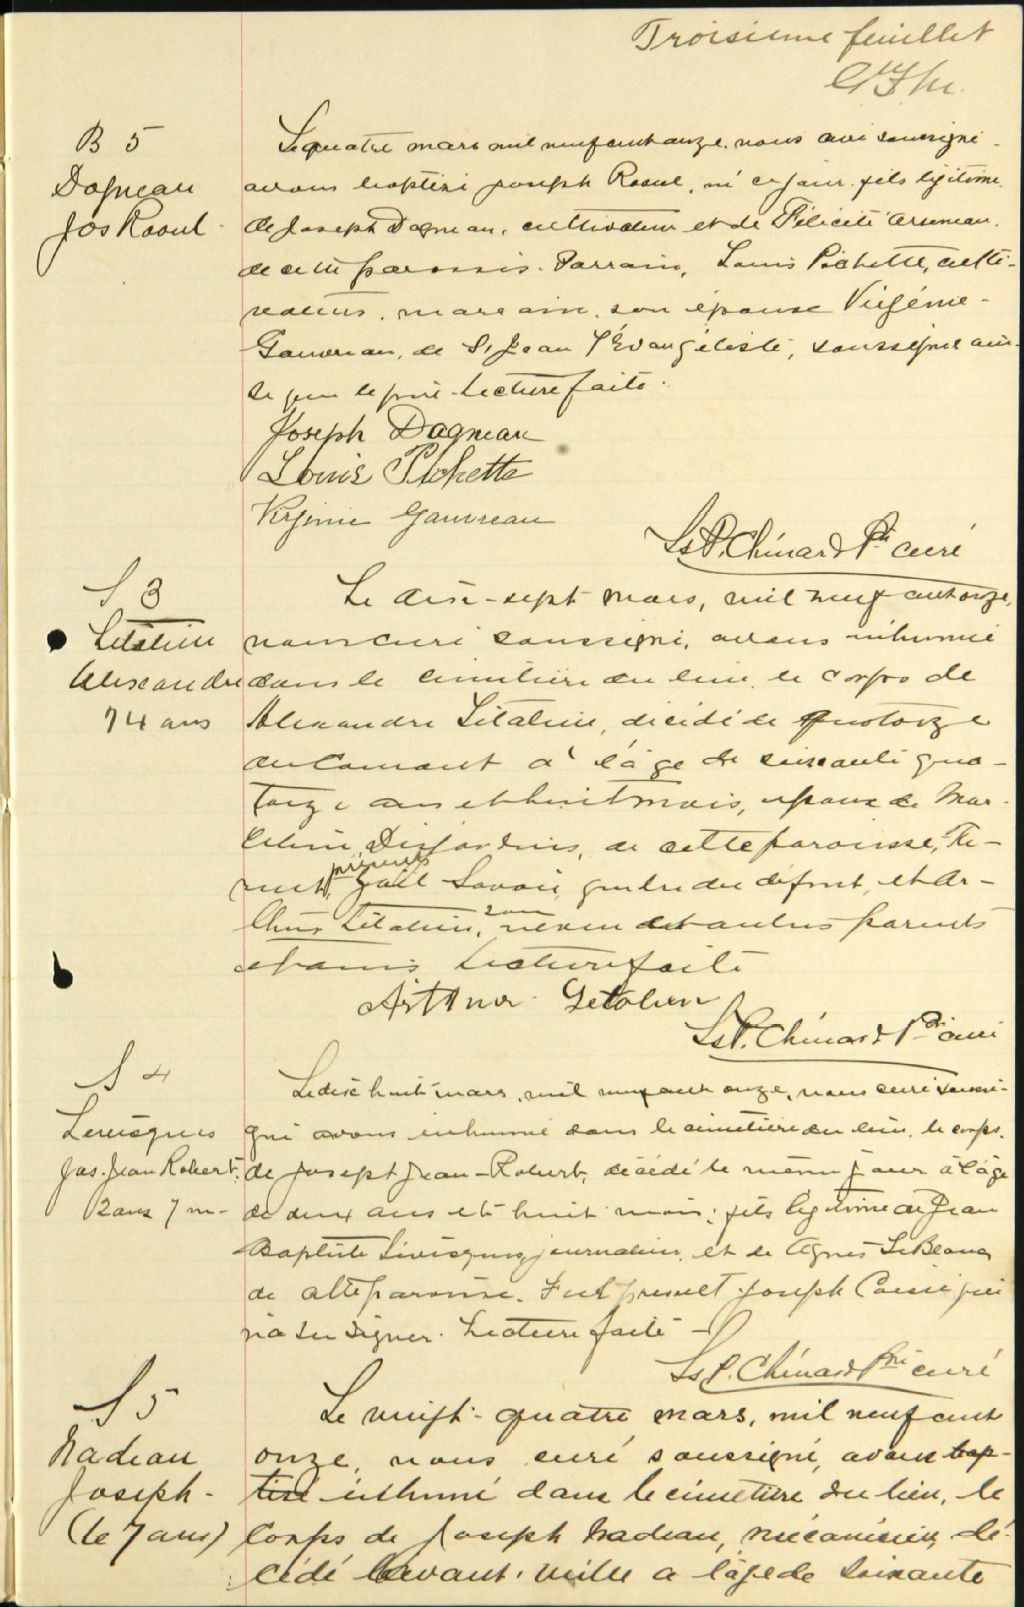 Troisieme feuillet
B 5
Dagneau
Jos Raoul
Le quatre mars mil neuf cent onze, nous curé soussigné
avons baptisé Joseph Raoul, né ce jour, fils légitime
de Joseph Dagneau, cultivateur et de Félicité Arseneau,
de cette paroisse. Parrain, Louis Pichette, culti-
vateur, marraine, son épouse Virginie
Gauvreau, de St Jean l'Évangéliste, soussignés ain-
si que le père. Lecture faite.
Joseph Dagneau
Louis Pichette
Virginie Gauvreau
Ls P. Chénard Ptre curé
S 3
Létalien
Alexandre
74 ans
Le dix-sept mars, mil neuf cent onze,
nous curé soussigné, avons inhumé
dans le cimetière du lieu, le corps de
Alexandre Létalien, décédé le quatorze
du courant à l'âge de soixante qua-
torze ans et huit mois, époux de Mar-
celine Desjardins, de cette paroisse, Fu-
rent présents Savoie, gendre du défunt, et Ar-
thur Létalien, son neveu et autres parents
et amis. Lecture faite
Arthur Letalien
Ls P. Chénard Ptre curé
S 4
Levesques
Jos. Jean Robert
2 ans 7 m-
Le dix huit mars, mil neuf cent onze, nous curé soussi-
gné avons inhumé dans le cimetière du lieu, le corps
de Joseph Jean-Robert, décédé le même jour à l'âge
de deux ans et huit mois, fils légitime de Jean
Baptiste Lévesques, journalier, et de Agnès LeBlanc
de cette paroisse. Fut présent Joseph qui
n'a su signer. Lecture faite -
Ls P. Chénard Ptre curé
S 5
Nadeau
Joseph -
(6e 7 ans)
Le vingt-quatre mars, mil neuf cent
onze, nous curé soussigné, avons bap-
tisé inhumé dans le cimetière du lieu, le
corps de Joseph Nadeau, mécanicien, dé-
cédé l'avant-veille a l'âge de soixante